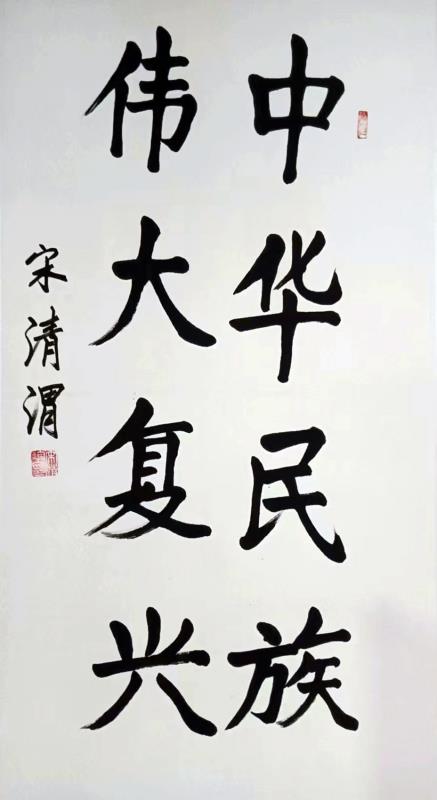 中华民族
伟大复兴
宋清渭